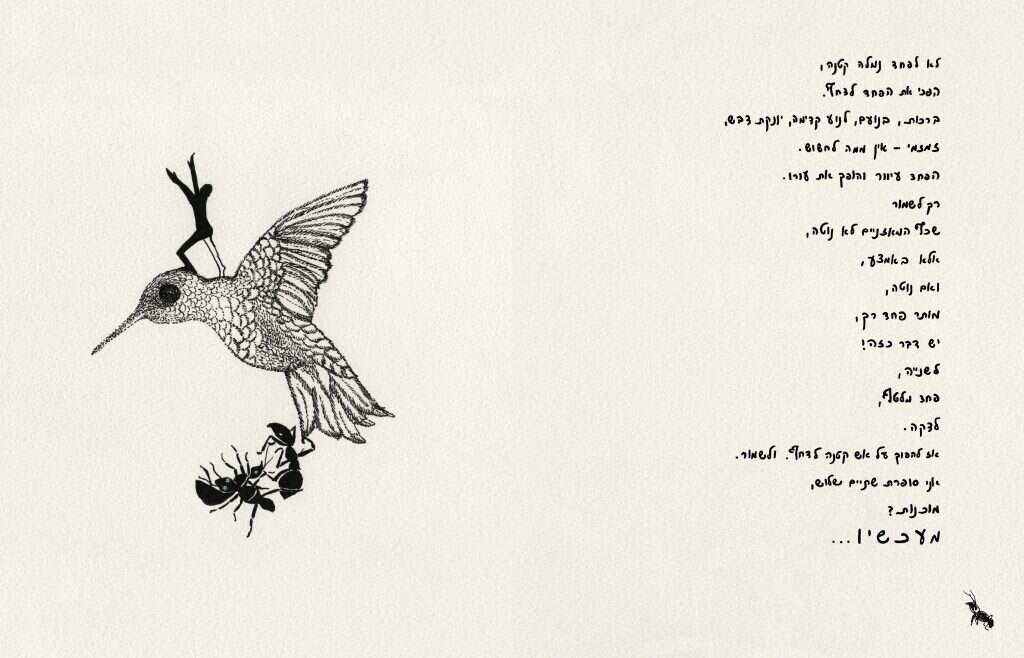 לא לפחד נמלה קטנה,
הפכי את הפחד לדחף.
ברכות, בנועם, לנוע קדימה, יונקת דבש,
זמזמי - אין ממה לחשוש.
הפחד עיוור והופך את עורו.
רק לשמור
שכף המאזניים לא נוטה,
אלא באמצע,
ואם נוטה,
מותר פחד רק,
יש דבר כזה!
לשנייה,
פחד מלטף,
לדקה.
אז להפוך על אש קטנה לדחף. ולשמור.
אני סופרת שתיים שלוש,
מוכנות?
מעכשיו...